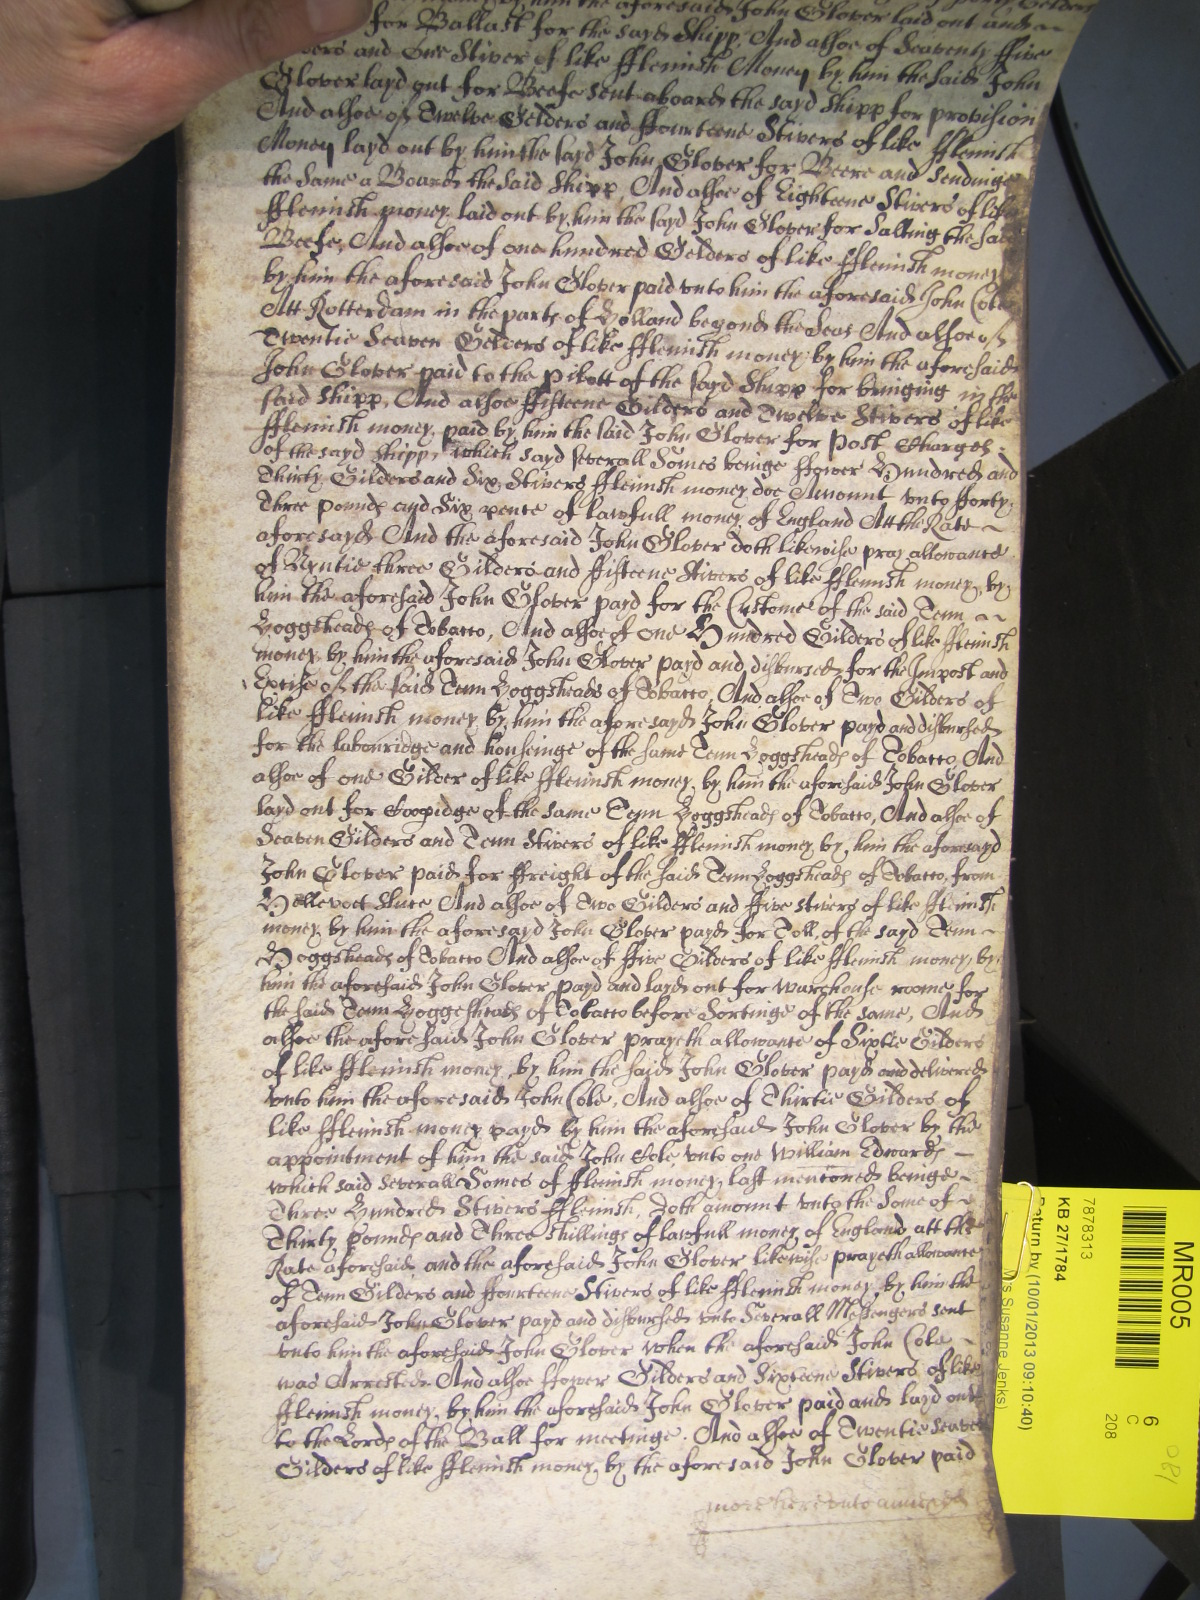 money by him the aforesaid John Glover laid out and
for Ballast for the sayd Shipp, And alsoe of Seaventy ffive
and One Stiver of like fflemish Money by him the said John
Glover layd out for Beefe sent aboard the sayd Shipp for provision
And alsoe of Twelve Gelders and ffourteene Stivers of like fflemish
Money layd out by him the sayd John Glover for Beere and Sendinge
the same a Board the said Shipp And alsoe of Eighteene Stivers of like
fflemish money laid out by him the sayd John Glover for Salting the said
Beefe, And alsoe of one hundred Gelders of like fflemish money
by him the aforesaid John Glover paid vnto him the aforesaid John Cole
Att Rotterdam in the partes of Holland beyond the Seas And alsoe of
Twentie Seaven Gelders of like fflemish money by him the aforesaid
John Glover paid to the Pilott of the sayd Shipp for bringing in the
said Shipp, And alsoe ffifteene Gilders and Twelve Stivers of like
fflemish money paid by him the said John Glover for Post Charges
of the sayd Shipp, which sayd severall Somes beinge ffower Hundred and
Thirty Gilders and Six Stivers fflemish money doe Amount vnto fforty
Three pounds and Six pence of lawfull money of England Att the Rate
aforesayd And the aforesaid John Glover doth likewise pray allowance
of Nyntie three Gilders and ffifteene Stivers of like fflemish money by
him the aforesaid John Glover payd for the Custome of the said Tenn
Hoggsheads of Tobacco, And alsoe of one Hundred Gilders of like fflemish
money by him the aforesaid John Glover payd and disbursed for the Impost and
Excise of the said Tenn Hoggsheads of Tobacco, And alsoe of Two Gilders of
like fflemish money by him the aforesayd John Glover payd and disbursed
for the labouridge and houseinge of the same Tenn Hoggsheads of Tobacco, And
alsoe of one Gilder of like fflemish money by him the aforesaid John Glover
layd out for Coopidge of the same Tenn Hoggsheads of Tobacco, And alsoe of
Seaven Gilders and Tenn Stivers of like fflemish money by him the aforesayd
John Glover paid for ffreight of the said Tenn Hoggsheads of Tobacco from
Hellevoet Sluce And alsoe of Two Gilders and ffive stivers of like fflemish
money by him the aforesayd John Glover payd for Toll of the sayd Tenn
Hoggsheads of Tobacco And alsoe of ffive Gilders of like fflemish money by
him the aforesaid John Glover payd and layd out for warehouse roome for
the said Tenn Hoggesheads of Tobacco before Sortinge of the same, And
alsoe the aforesaid John Glover prayeth allowance of Sixtie Gilders
of like fflemish money by him the said John Glover payd and delivered
vnto him the aforesaid John Cole, And alsoe of Thirtie Gilders of
like fflemish money payd by him the aforesaid John Glover by the
appointment of him the said John Cole vnto one William Edwards
which said severall Somes of fflemish money last mentioned beinge
Three Hundred Stivers fflemish, doth amount vnto the Some of
Thirty pounds and Three shillings of lawfull money of England att the
Rate aforesaid and the aforesaid John Glover likewise prayeth allowance
of Tenn Gilders and ffourteene Stivers of like fflemish money by him the
aforesaid John Glover payd and disbursed vnto Severall Messengers sent
vnto him the aforesaid John Glover when the aforesaid John Cole
was Arrested And alsoe ffower Gilders and Sixteene Stivers of like
fflemish money by him the aforesaid John Glover paid and layd out
to the Lords of the Ball for meetinge. And alsoe of Twentie Seaven
Gilders of like fflemish money by the aforesaid John Glover paid
more herevnto annexed
MR005
6
C
208
7878313
KB 27/1784
Return by (10/01/2013 09:10:40)
Mrs Susanne Jenks)